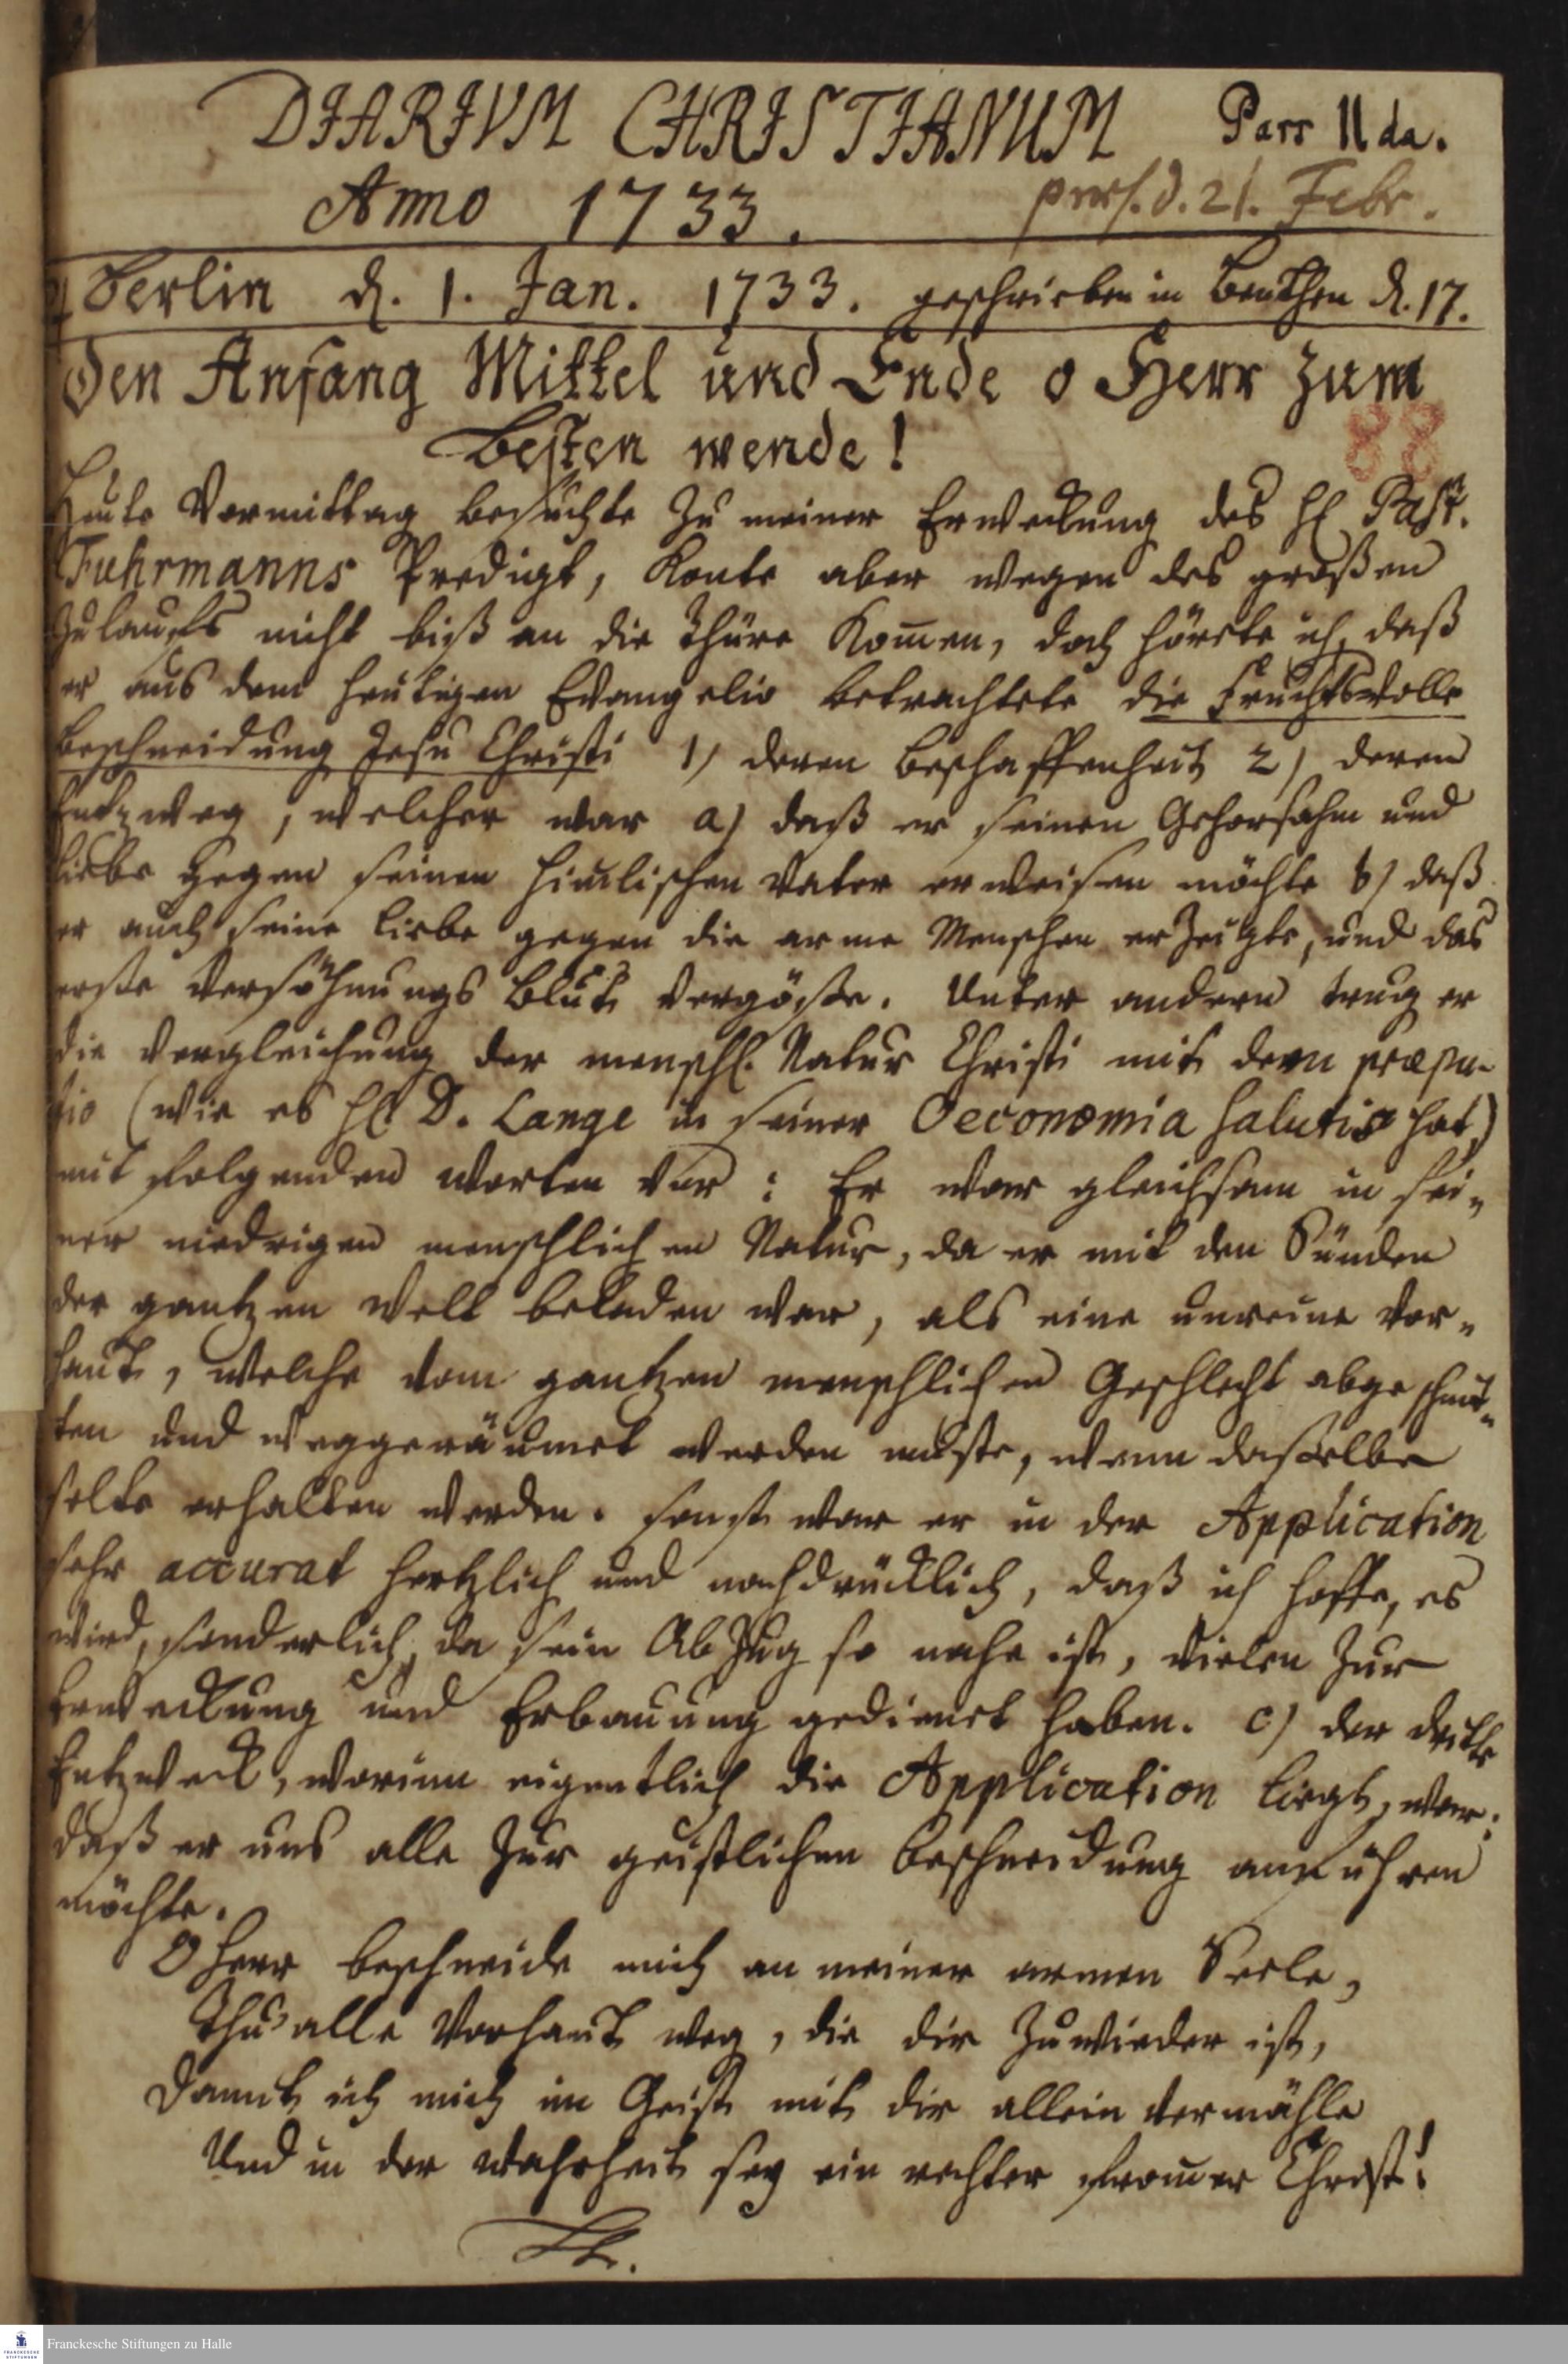 DIARIVM CHRISTIANUM Pars IIda.
Anno 1733. præs. d. 21. Febr.
♃ Berlin d. 1. Jan. 1733. geschrieben in Beuthen d. 17.
Den Anfang Mittel und Ende o Herr zum
Besten wende!
88
Heute Vormittag besuchte zu meiner Erweckung des H. Past.
Fuhrmanns Predigt, konte aber wegen des großen
Zulaufs nicht biß an die Thüre kom̄en, doch hörete ich, daß
er aus dem heutigen Evangelio betrachtete die Fruchtsvolle
Beschneidung Jesu Christi 1) deren Beschaffenheit 2) deren
Entzweg, welcher war a) daß er seinen Gehorsahm und
Liebe gegen seinen him̄lischen Vater erweisen möchte b) daß
er auch seine Liebe gegen die arme Menschen erzeigte, und das
erste Versöhnungs Blut vergöße. Unter andern trug er
die Vergleichung der menschl. Natur Christi mit dem præpu-
tio (wie es H. D. Lange in seiner Oeconomia Salutis hat)
mit folgenden worten vor: Er war gleichsam in sei-
ner niedrigen menschlichen Natur, da er mit den Sünden
der gantzen Welt beladen war, als eine unreine Vor-
haut, welche vom gantzen menschlichen Geschlecht abgeschnit-
ten und weggeräumet werden muste, wenn dasselbe
solte erhalten werden. Sonst war er in der Application
sehr accurat hertzlich und nachdrücklich, daß ich hoffe, es
wird, sonderlich, da sein Abzug so nahe ist, vielen zur
Erweckung und Erbauung gedienet haben. c) der dritte
Entzweck, worinn eigentlich die Application liegt, war:
daß er uns alle zur geistlichen Beschneidung anführen
möchte.
O Herr beschneide mich an meiner armen Seele,
Thu alle Vorhaut weg, die dir zuwieder ist,
Damit ich mich im Geist mit dir allein vermähle
Und in der Wahrheit sey ein rechter from̄er Christ!
Franckesche Stiftungen zu Halle
FRANCKESCHE
STIFTUNGEN